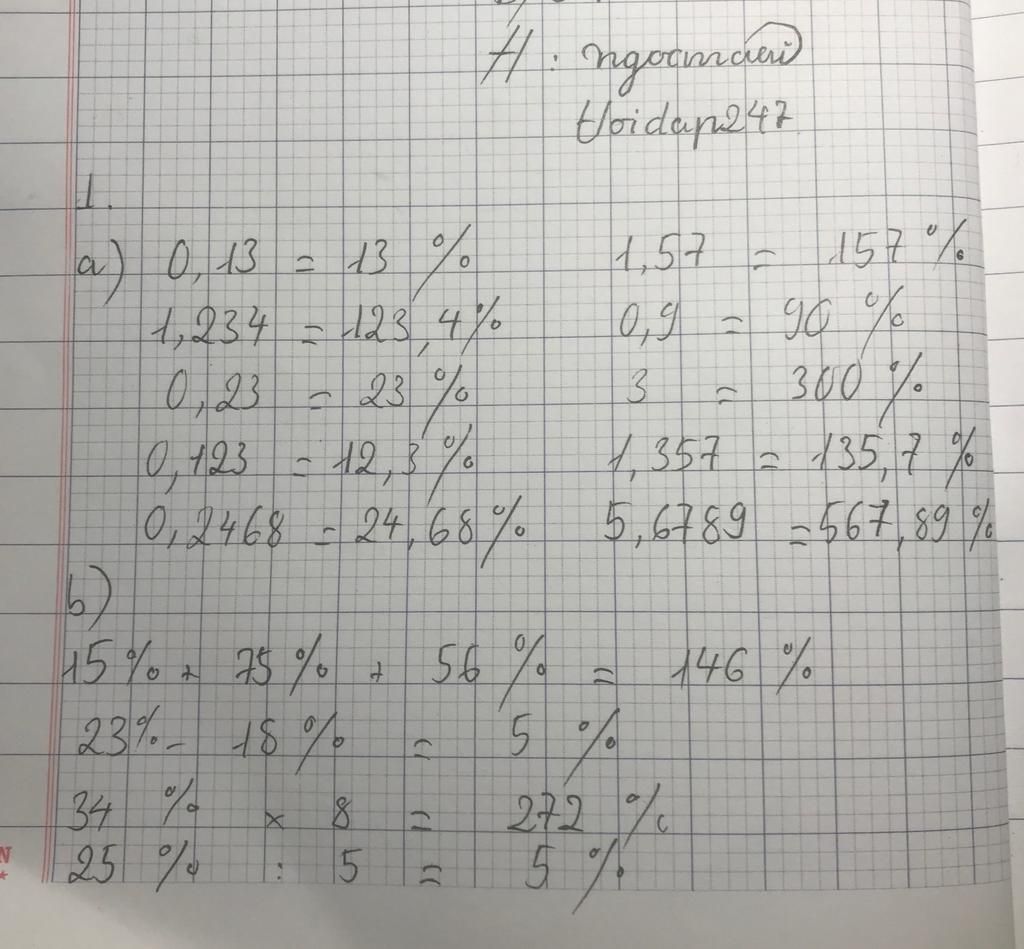 H: ngocmdeii
Hoidap247
1.
a) 0,13 = 13 % 1,57 = 157 %
1,234 = 123,4% 0,9 = 90 %
0,23 = 23 % 3 = 300 %
0,123 = 12,3 % 1,357 = 135,7 %
0,2468 = 24,68 % 5,6789 = 567,89 %
b)
15 % + 75 % + 56 % = 146 %
23% - 18 % = 5 %
34 % × 8 = 272 %
25 % : 5 = 5 %